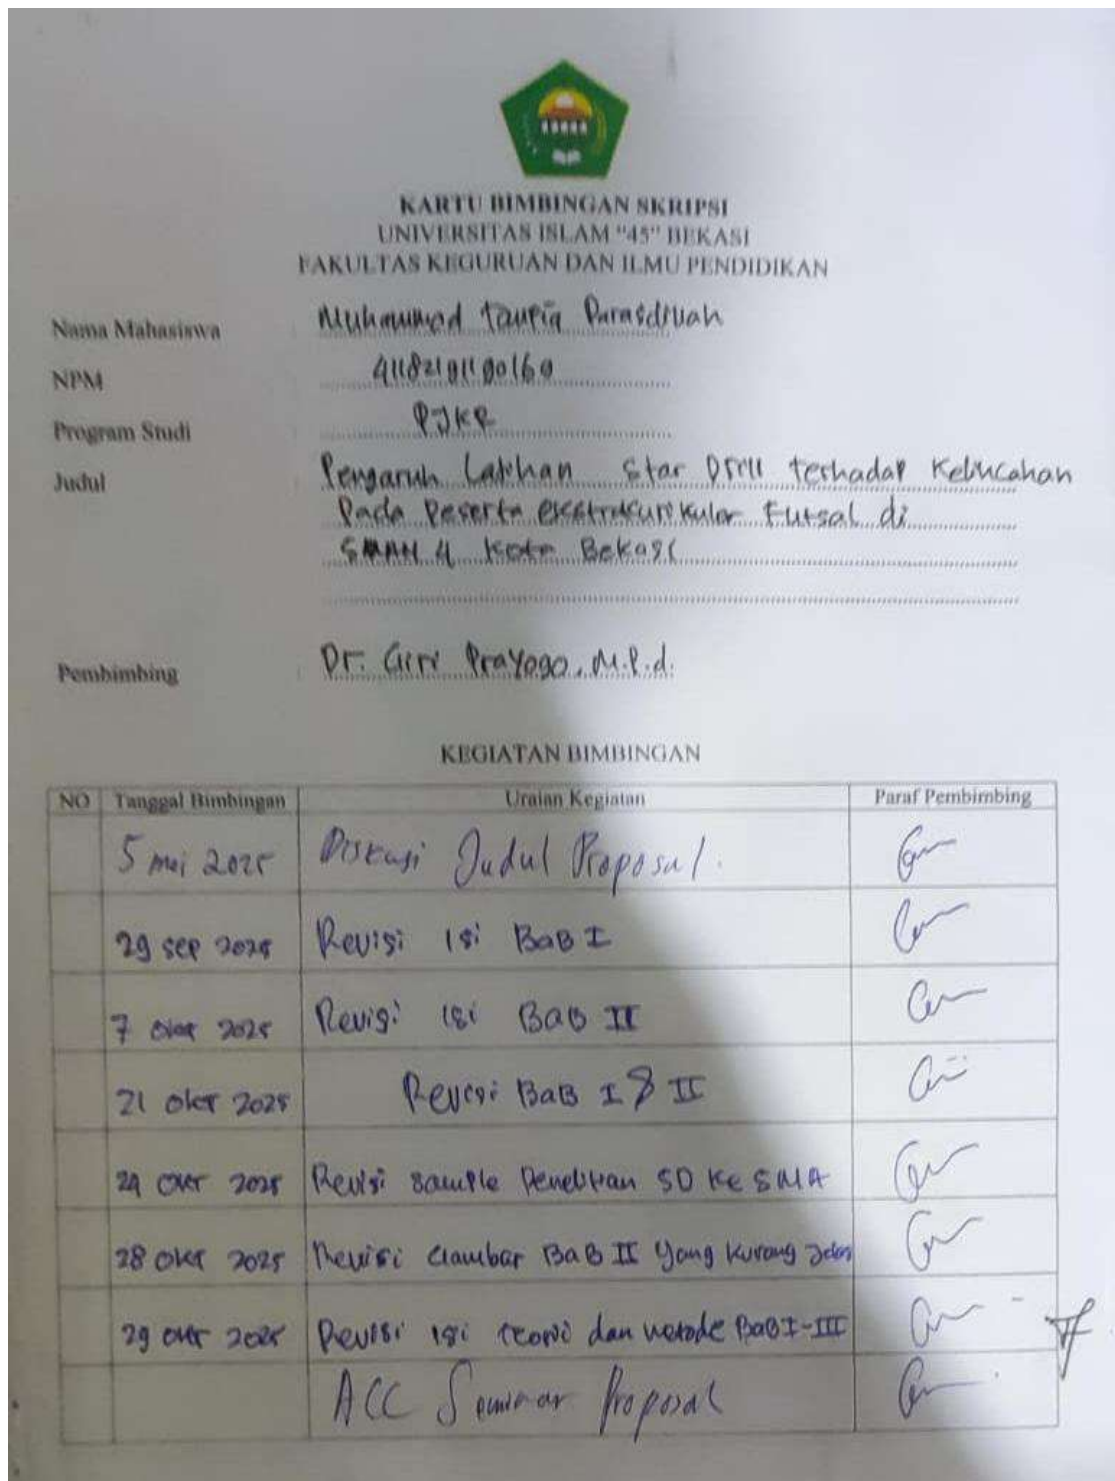 KARTU BIMBINGAN SKRIPSI
UNIVERSITAS ISLAM "45" BEKASI
FAKULTAS KEGURUAN DAN ILMU PENDIDIKAN
Nama Mahasiswa Muhammad
NPM
Program Studi PJKR
Judul : Pengaruh Latihan Star Drill terhadap Kelincahan
Pada Peserta ekstrakurikuler Futsal di
SMAN 4 Kota Bekasi
Pembimbing : Dr. Giri Prayogo, M.P.d.
KEGIATAN BIMBINGAN
NO Tanggal Bimbingan Uraian Kegiatan Paraf Pembimbing
5 mei 2025 Diskusi Judul Proposal.
29 sep 2025 Revisi isi BaB I
7 okt 2025 Revisi isi BaB II
21 okt 2025 Revisi BaB I & II
24 okt 2025 Revisi sample Penelitian SD Ke SMA
28 okt 2025 Revisi Gambar BaB II yang kurang Jelas
29 okt 2025 Revisi isi teori dan metode BaB I-III
ACC Seminar Proposal